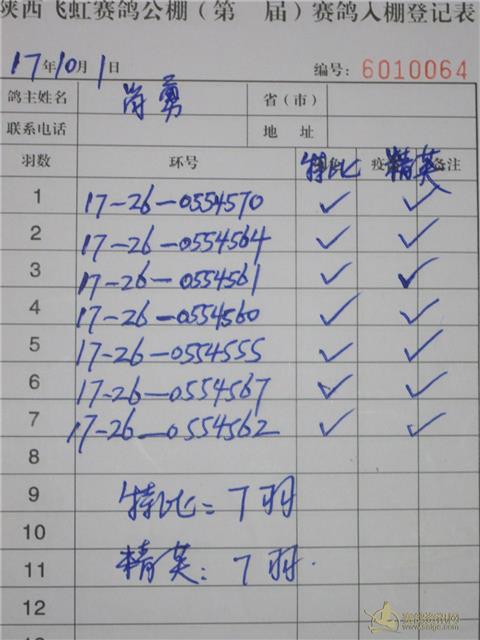 陕西飞虹赛鸽公棚（第 届）赛鸽入棚登记表
17年10月1日 编号：6010064
鸽主姓名 肖勇 省（市）
联系电话 地 址
羽数 环号 特比 精英 备注
1 17-26-0554570 ✓ ✓
2 17-26-0554564 ✓ ✓
3 17-26-0554561 ✓ ✓
4 17-26-0554560 ✓ ✓
5 17-26-0554555 ✓ ✓
6 17-26-0554567 ✓ ✓
7 17-26-0554562 ✓ ✓
8
9 特比：7羽
10
11 精英：7羽.
12